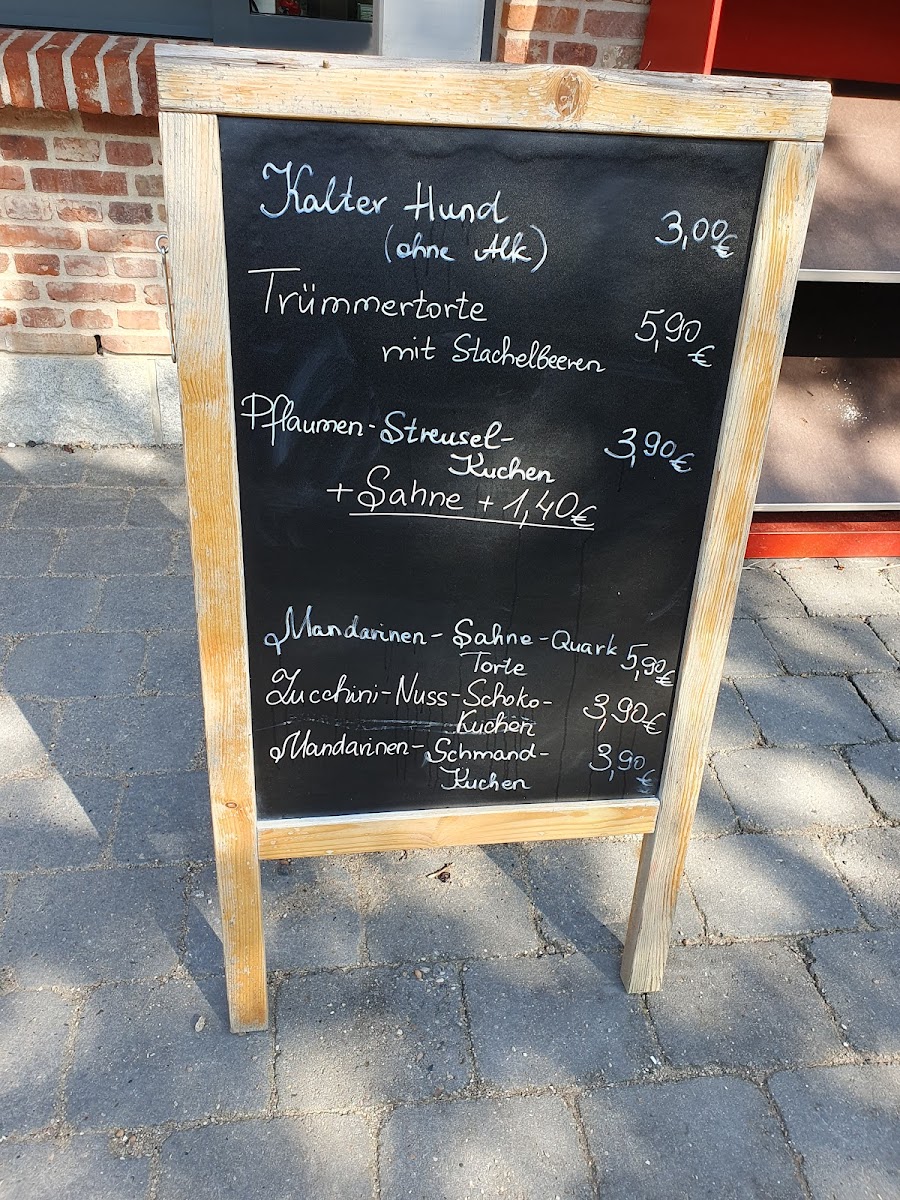 Kalter Hund 3,00€
(ohne Alk)
Trümmertorte 5,90€
mit Stachelbeeren
Pflaumen-Streusel- 3,90€
Kuchen
+ Sahne + 1,40€
Mandarinen-Sahne-Quark 5,90€
Torte
Zucchini-Nuss-Schoko- 3,90€
Kuchen
Mandarinen-Schmand- 3,90€
Kuchen